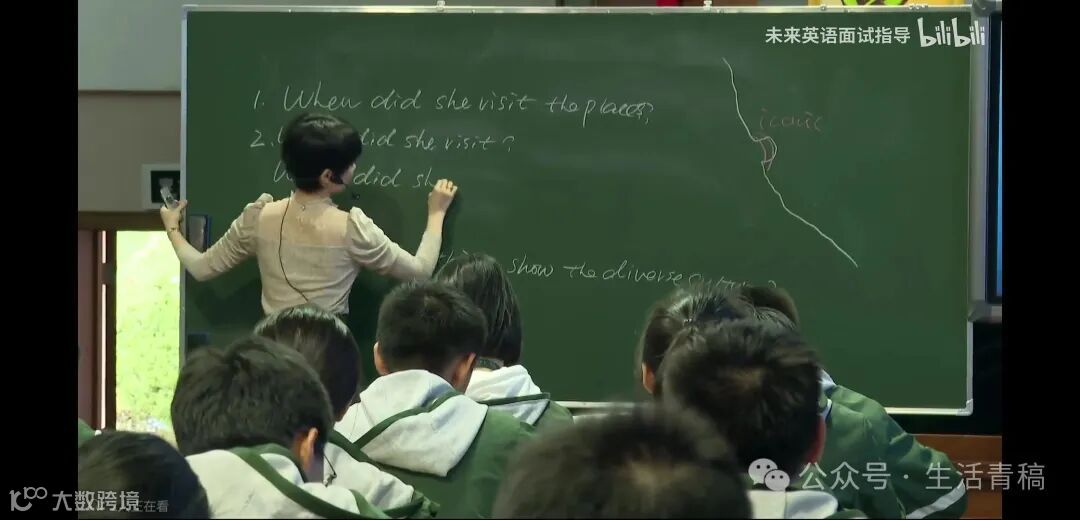 未来英语面试指导 bilibili
1. When did she visit the places?
iconic
2. did she visit?
did sh
show the diverse
公众号 · 生活青稞
大数跨境
正在看